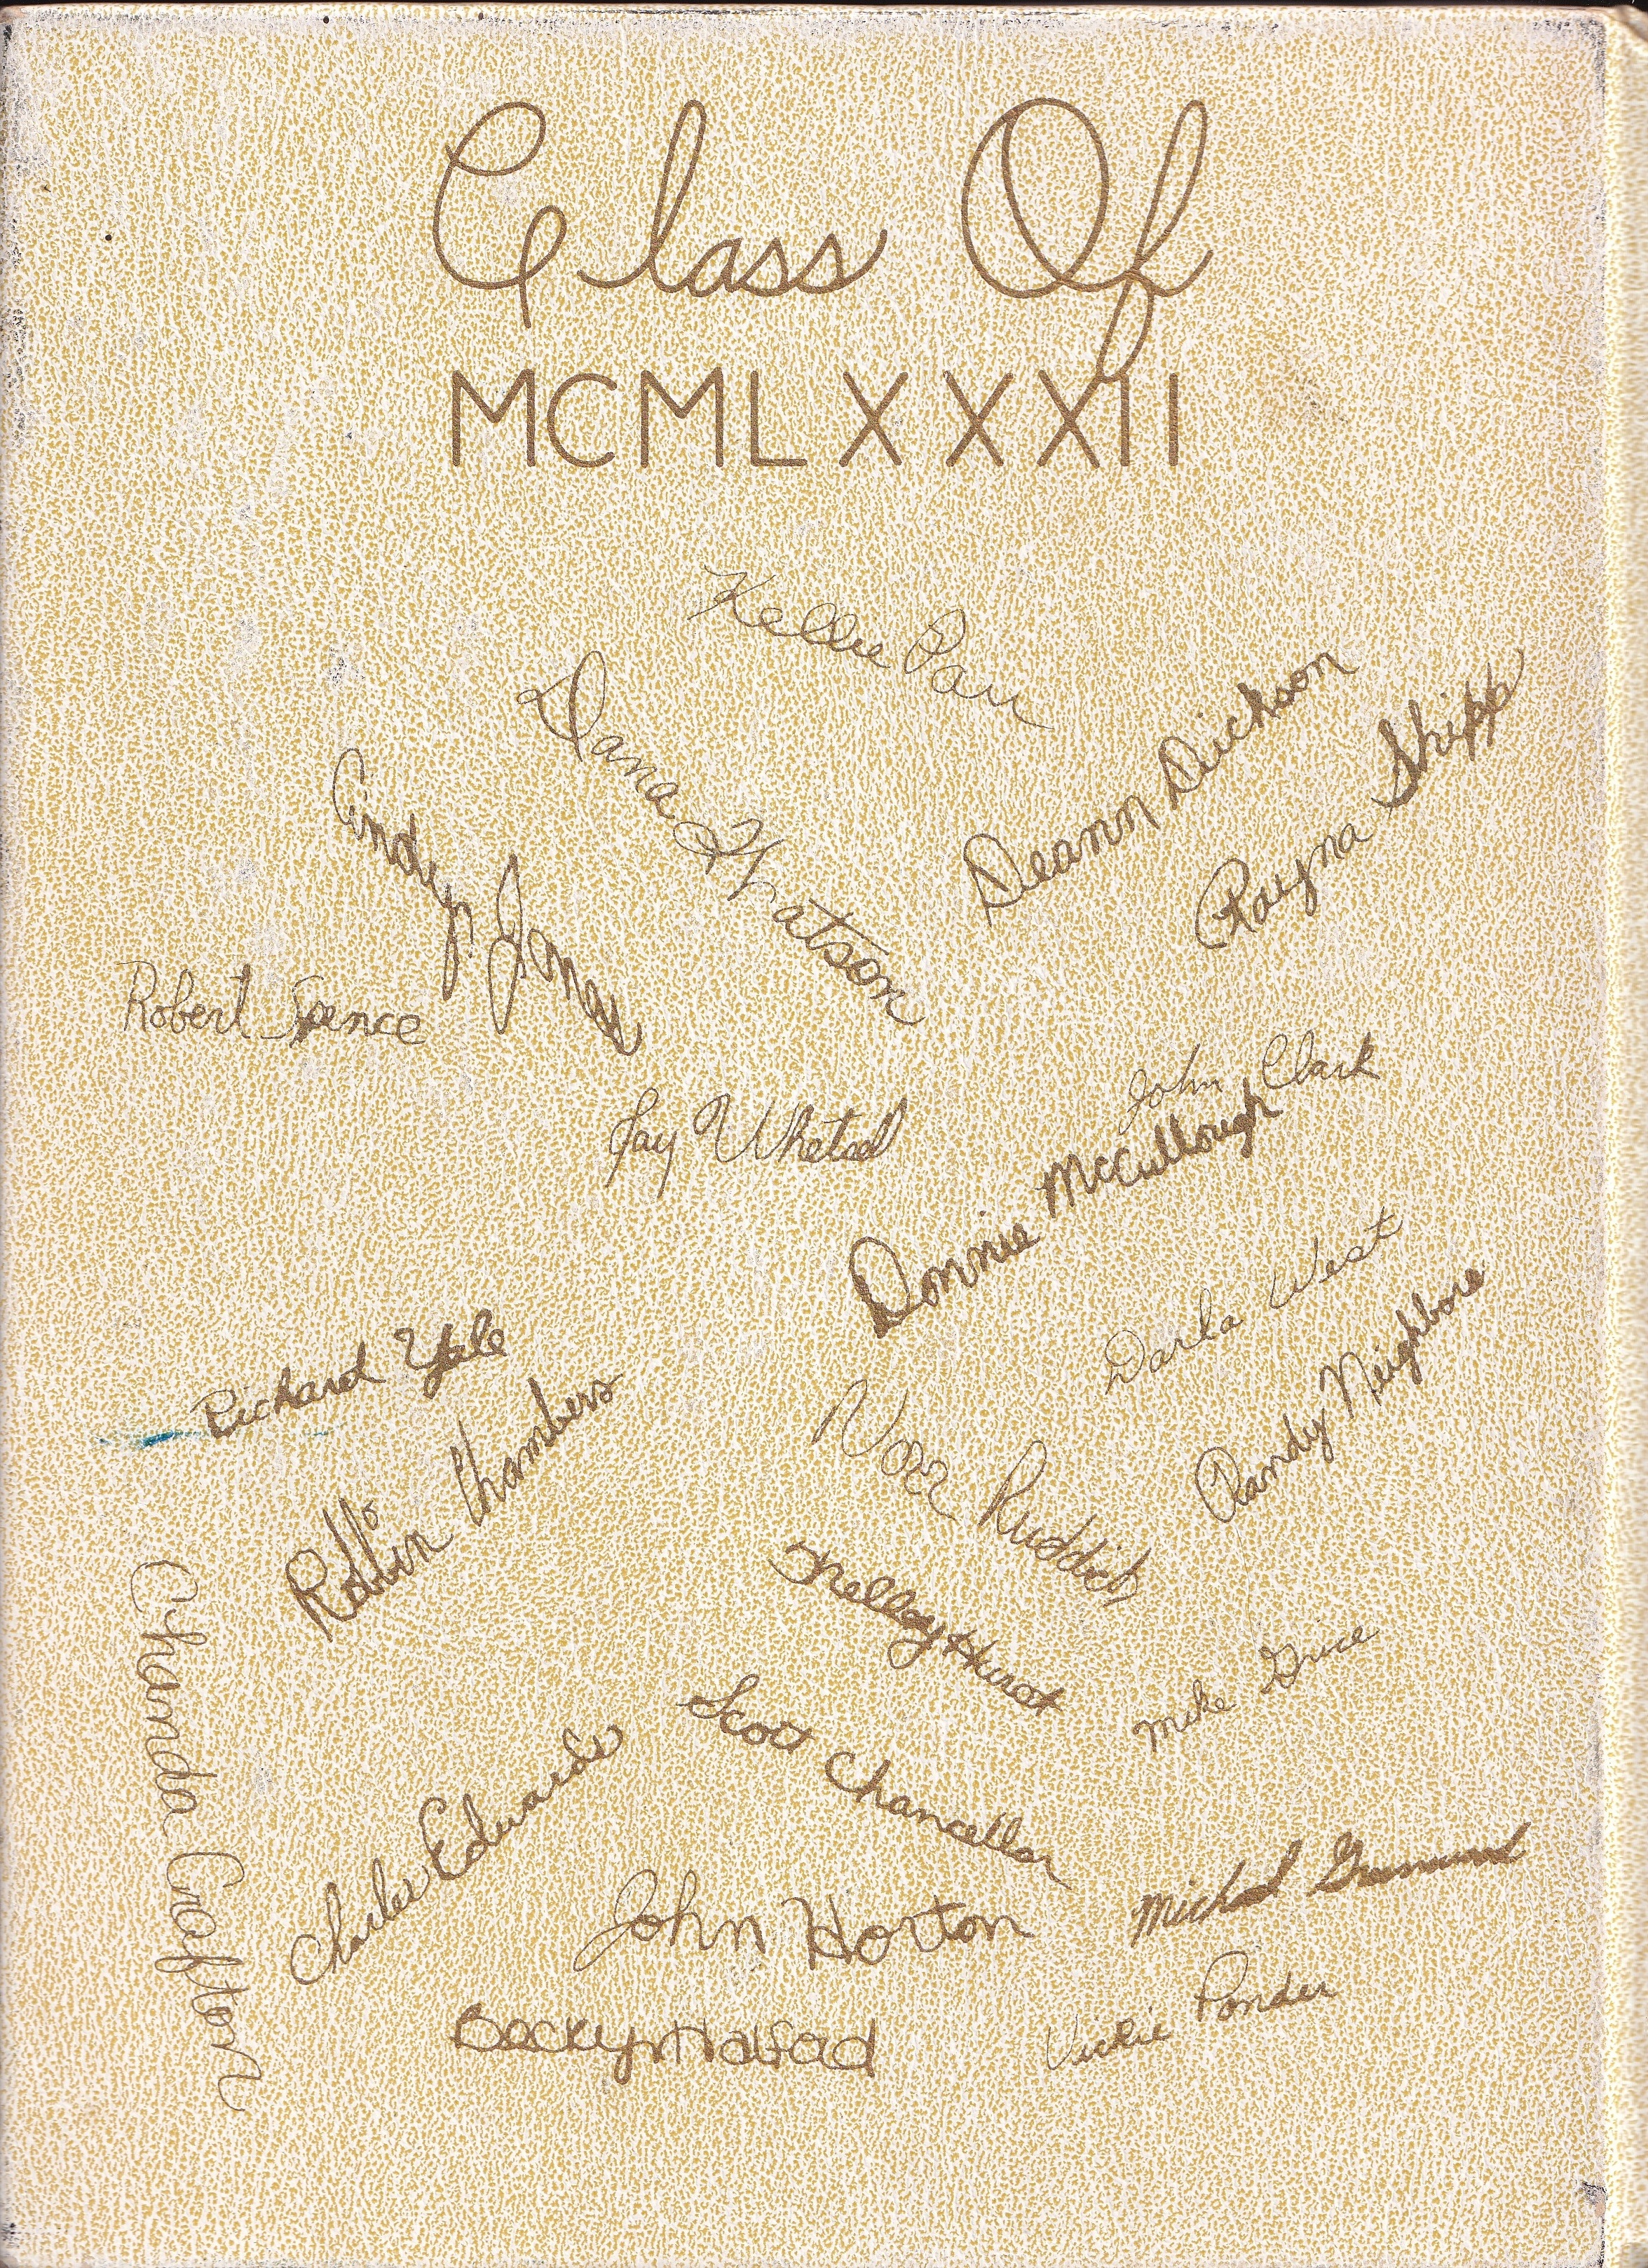 Class Of
MCMLXXXII
Kellie Parr
Dana Watson
Deann Dickson
Rayna Shipp
Cindy Jones
Robert Spence
John Clark
Jay Whetsel
Donnie McCullough
Darla West
Randy Neighbors
Richard Yale
Robbin Chambers
Noel Ruddick
Kelley Hurst
Chanda Crafton
Mike Grice
Scott Chancellor
Charles Edwards
John Horton
Michael
Vickie Ponder
Becky Halford